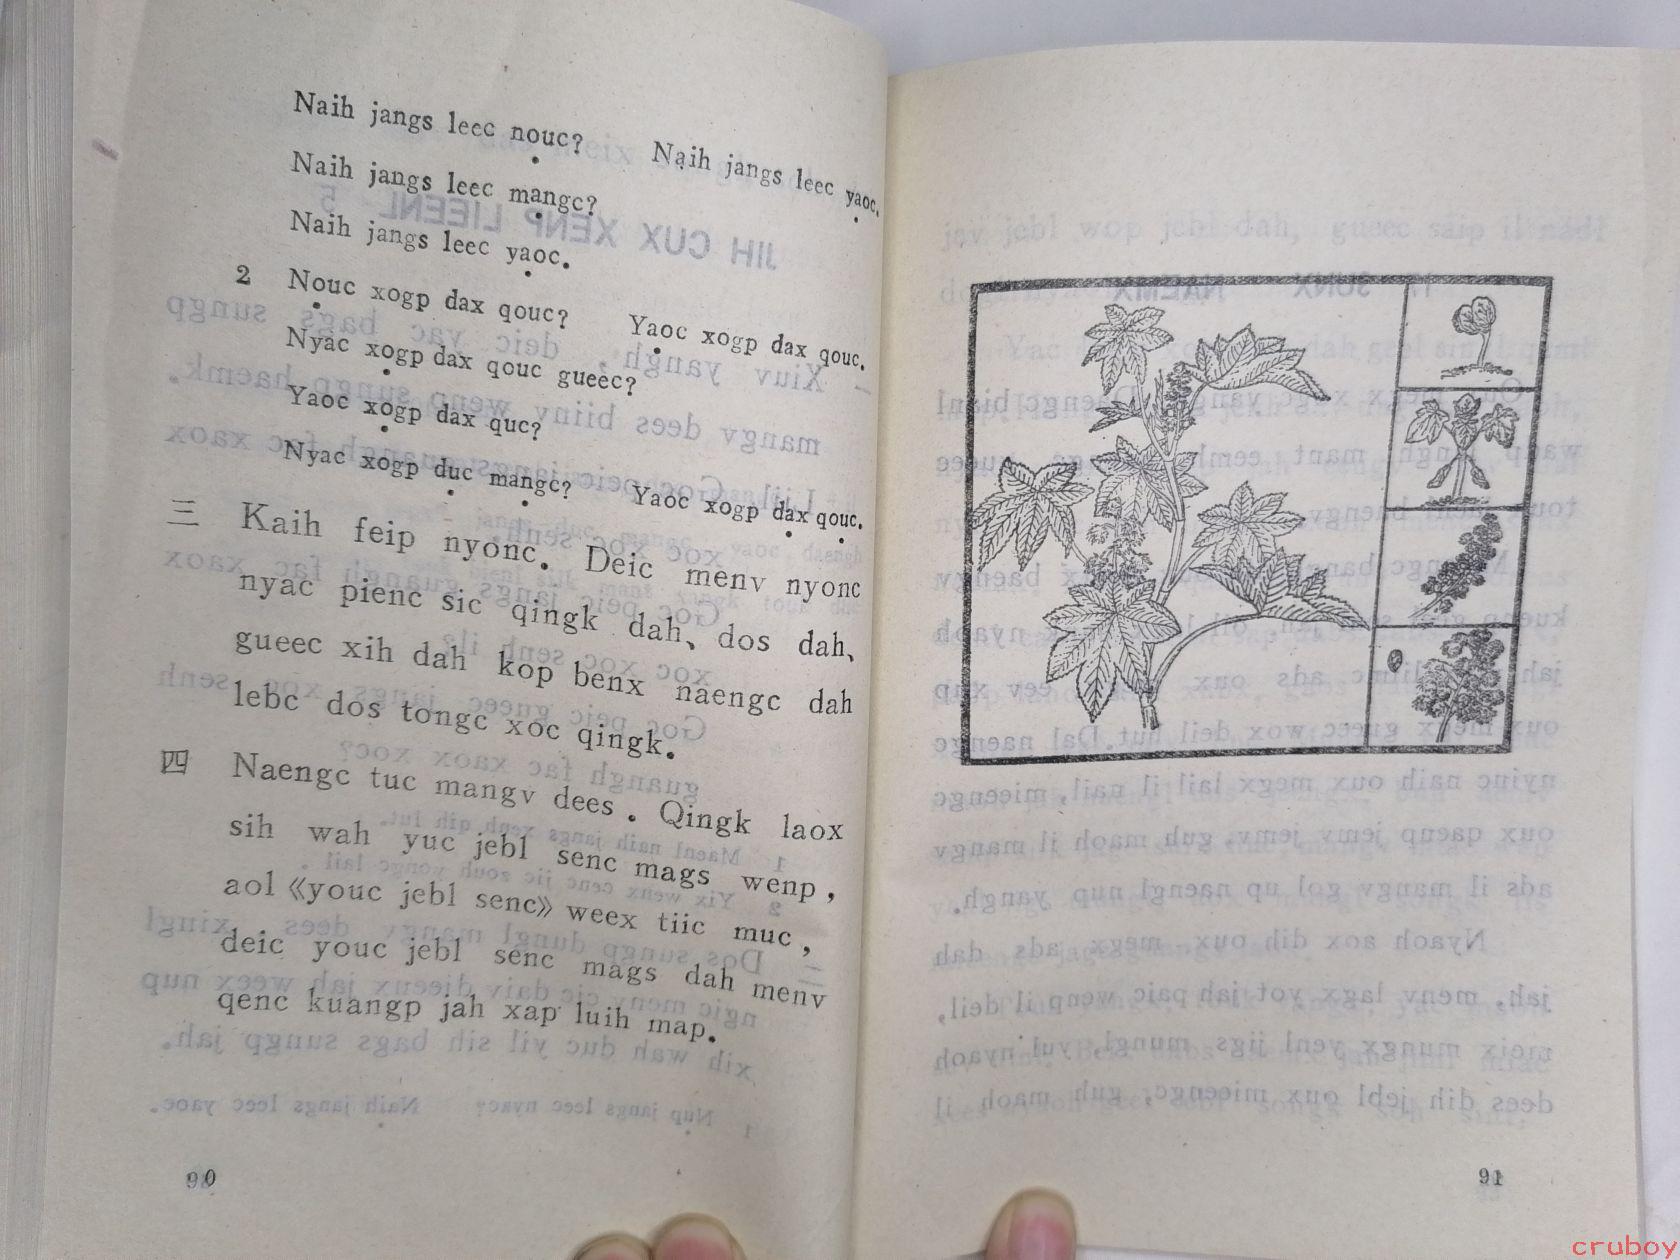 Naih jangs leec nouc? Naih jangs leec yaoc.
Naih jangs leec mangc?
Naih jangs leec yaoc.
2 Nouc xogp dax qouc? Yaoc xogp dax qouc.
Nyac xogp dax qouc gueec?
Yaoc xogp dax quc?
Nyac xogp duc mangc? Yaoc xogp dax qouc.
三 Kaih feip nyonc. Deic menv nyonc
nyac pienc sic qingk dah、dos dah、
gueec xih dah kop benx naengc dah
lebc dos tongc xoc qingk.
四 Naengc tuc mangv dees. Qingk laox
sih wah yuc jebl senc mags wenp,
aol《youc jebl senc》weex tiic muc,
deic youc jebl senc mags dah menv
qenc kuangp jah xap luih map.
90
91
cruboy